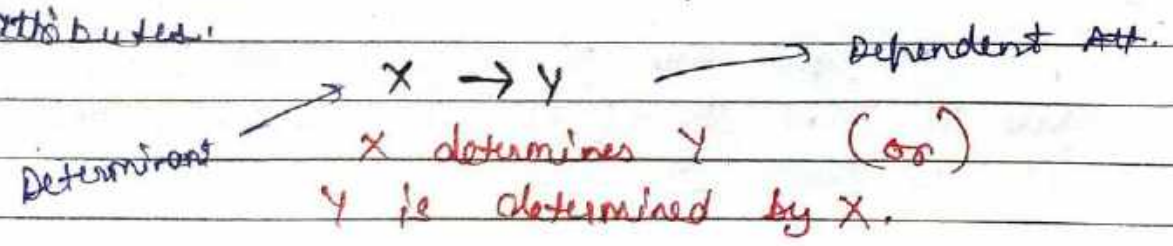 ttributes.
Dependent Att.
X → Y
Determinant
X determines Y (or)
Y is determined by X.